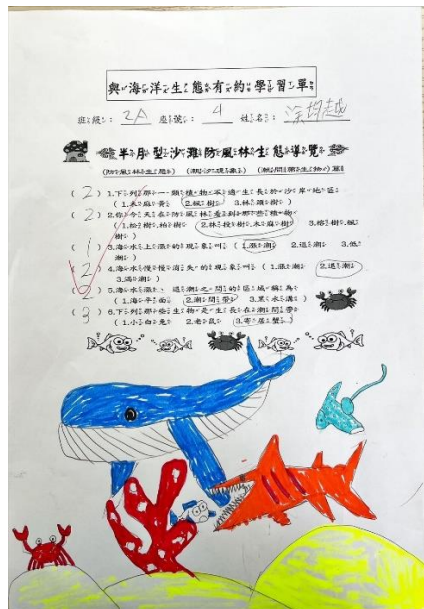 與海洋生態有約學習單
班級：2A 座號：4 姓名：涂均越
半月型沙灘防風林生態導覽
(防風林生態) (潮汐現象) (潮間帶生物)篇
(2) 1.下列那一類植物不適生長於沙岸地區
(1.木麻黃 2.楓樹 3.林頭樹)
(2) 2.你今天在防風林看到那些植物
(1.松樹.柏樹 2.林投樹.木麻黃 3.榕樹.楓樹)
(1) 3.海水上漲的現象叫 (1.漲潮 2.退潮 3.低潮)
(2) 4.海水慢慢消失的現象叫 (1.漲潮 2.退潮
3.滿潮)
(2) 5.海水漲、退潮之間的區域稱為
(1.海平面 2.潮間帶 3.黑水溝)
(3) 6.下列那些生物是生長在潮間帶
(1.小白兔 2.老鼠 3.寄居蟹)